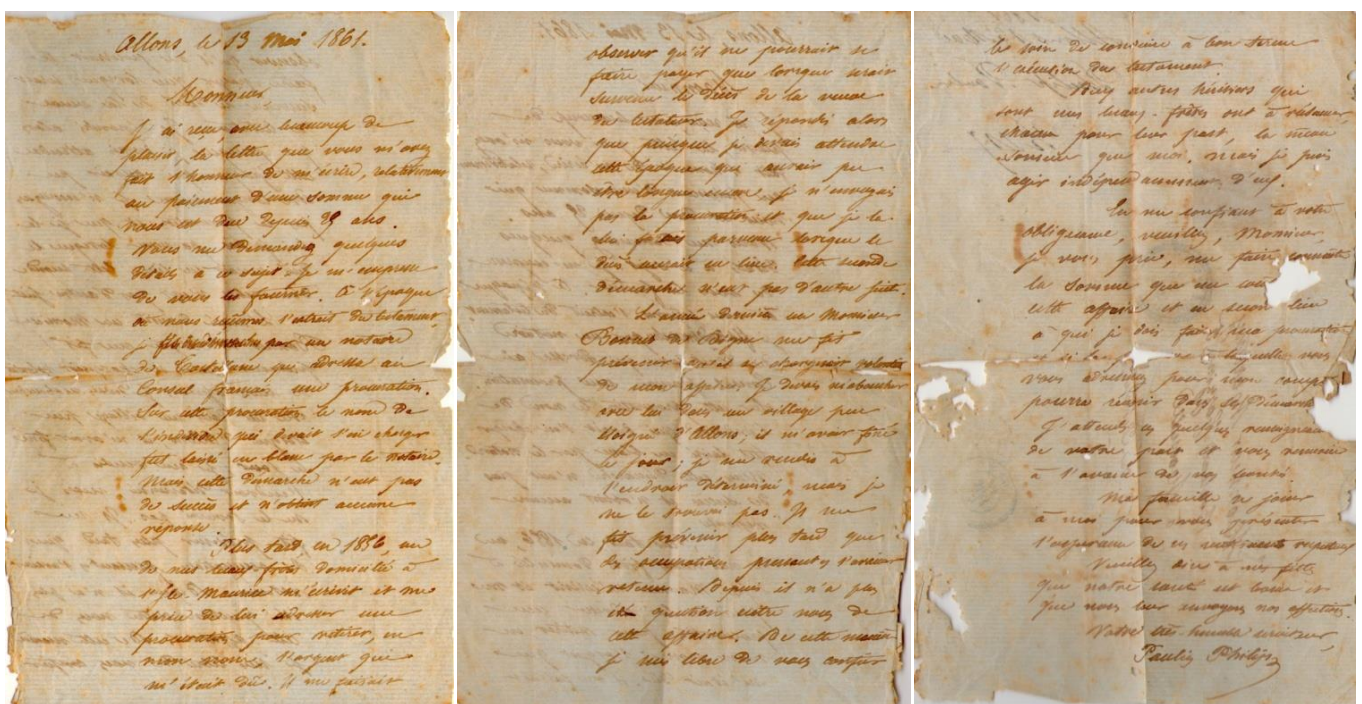 Allons, le 13 Mai 1861.
Monsieur
J'ai reçu avec beaucoup de
plaisir la lettre que vous m'avez
fait l'honneur de m'écrire, relativement
au paiement d'une somme qui
nous est due depuis 29 ans.
Vous me demandez quelques
détails à ce sujet. Je m'empresse
de vous les fournir. A l'époque
où nous reçûmes l'extrait du testament,
je fis par un notaire
de Castellane qui adressa au
Consul français une procuration.
Sur cette procuration le nom de
l'individu qui devait s'en charger
fut laissé en blanc par le notaire.
Mais cette démarche n'eut pas
de succès et n'obtint aucune
réponse
Plus tard en 1856, un
de mes beaux frères domicilié à
l'île Maurice m'écrivit et me
pria de lui adresser une
procuration pour retirer en
mon nom l'argent qui
m'était dû. Il me faisait
observer qu'il ne pourrait se
faire payer que lorsque serait
survenu le décès de la veuve
du testateur. Je répondis alors
que puisque je devais attendre
cette époque qui aurait pu
être longue encore, je n'envoyais
pas la procuration et que je la
lui ferais parvenir lorsque le
décès aurait eu lieu. Cette seconde
démarche n'eut pas d'autre suite.
L'année dernière un Monsieur
de Digne me fit
prévenir
de mon affaire. Je devais m'aboucher
avec lui dans un village peu
éloigné d'Allons; il m'avait fixé
le jour; je me rendis à
l'endroit déterminé, mais je
ne le trouvai pas. Il me
fit prévenir plus tard que
des occupations pressantes l'avaient
retenu. Depuis il n'a plus
été question entre nous de
cette affaire. De cette manière
je suis libre de vous confier
le soin de conduire à bon terme
l'exécution du testament.
Deux autres héritiers qui
sont mes beaux-frères ont à réclamer
chacun pour leur part, la même
somme que moi. Mais je puis
agir indépendamment d'eux.
En me confiant à votre
obligeance, veuillez, Monsieur,
je vous prie, me faire connaître
la somme que me
cette affaire et en second lieu
à qui je dois faire la procuration
et si la à laquelle vous
vous adressez pour mon compte
pourra réussir dans ses démarches
J'attends ces quelques renseignements
de votre part et vous remercie
à l'avance de vos bontés
Ma famille se joint
à moi pour vous présenter
l'assurance de ses sentiments
Veuillez dire à mes fils
que notre santé est bonne et
que nous leur envoyons nos affections.
Votre très-humble serviteur,
Paulin Philip